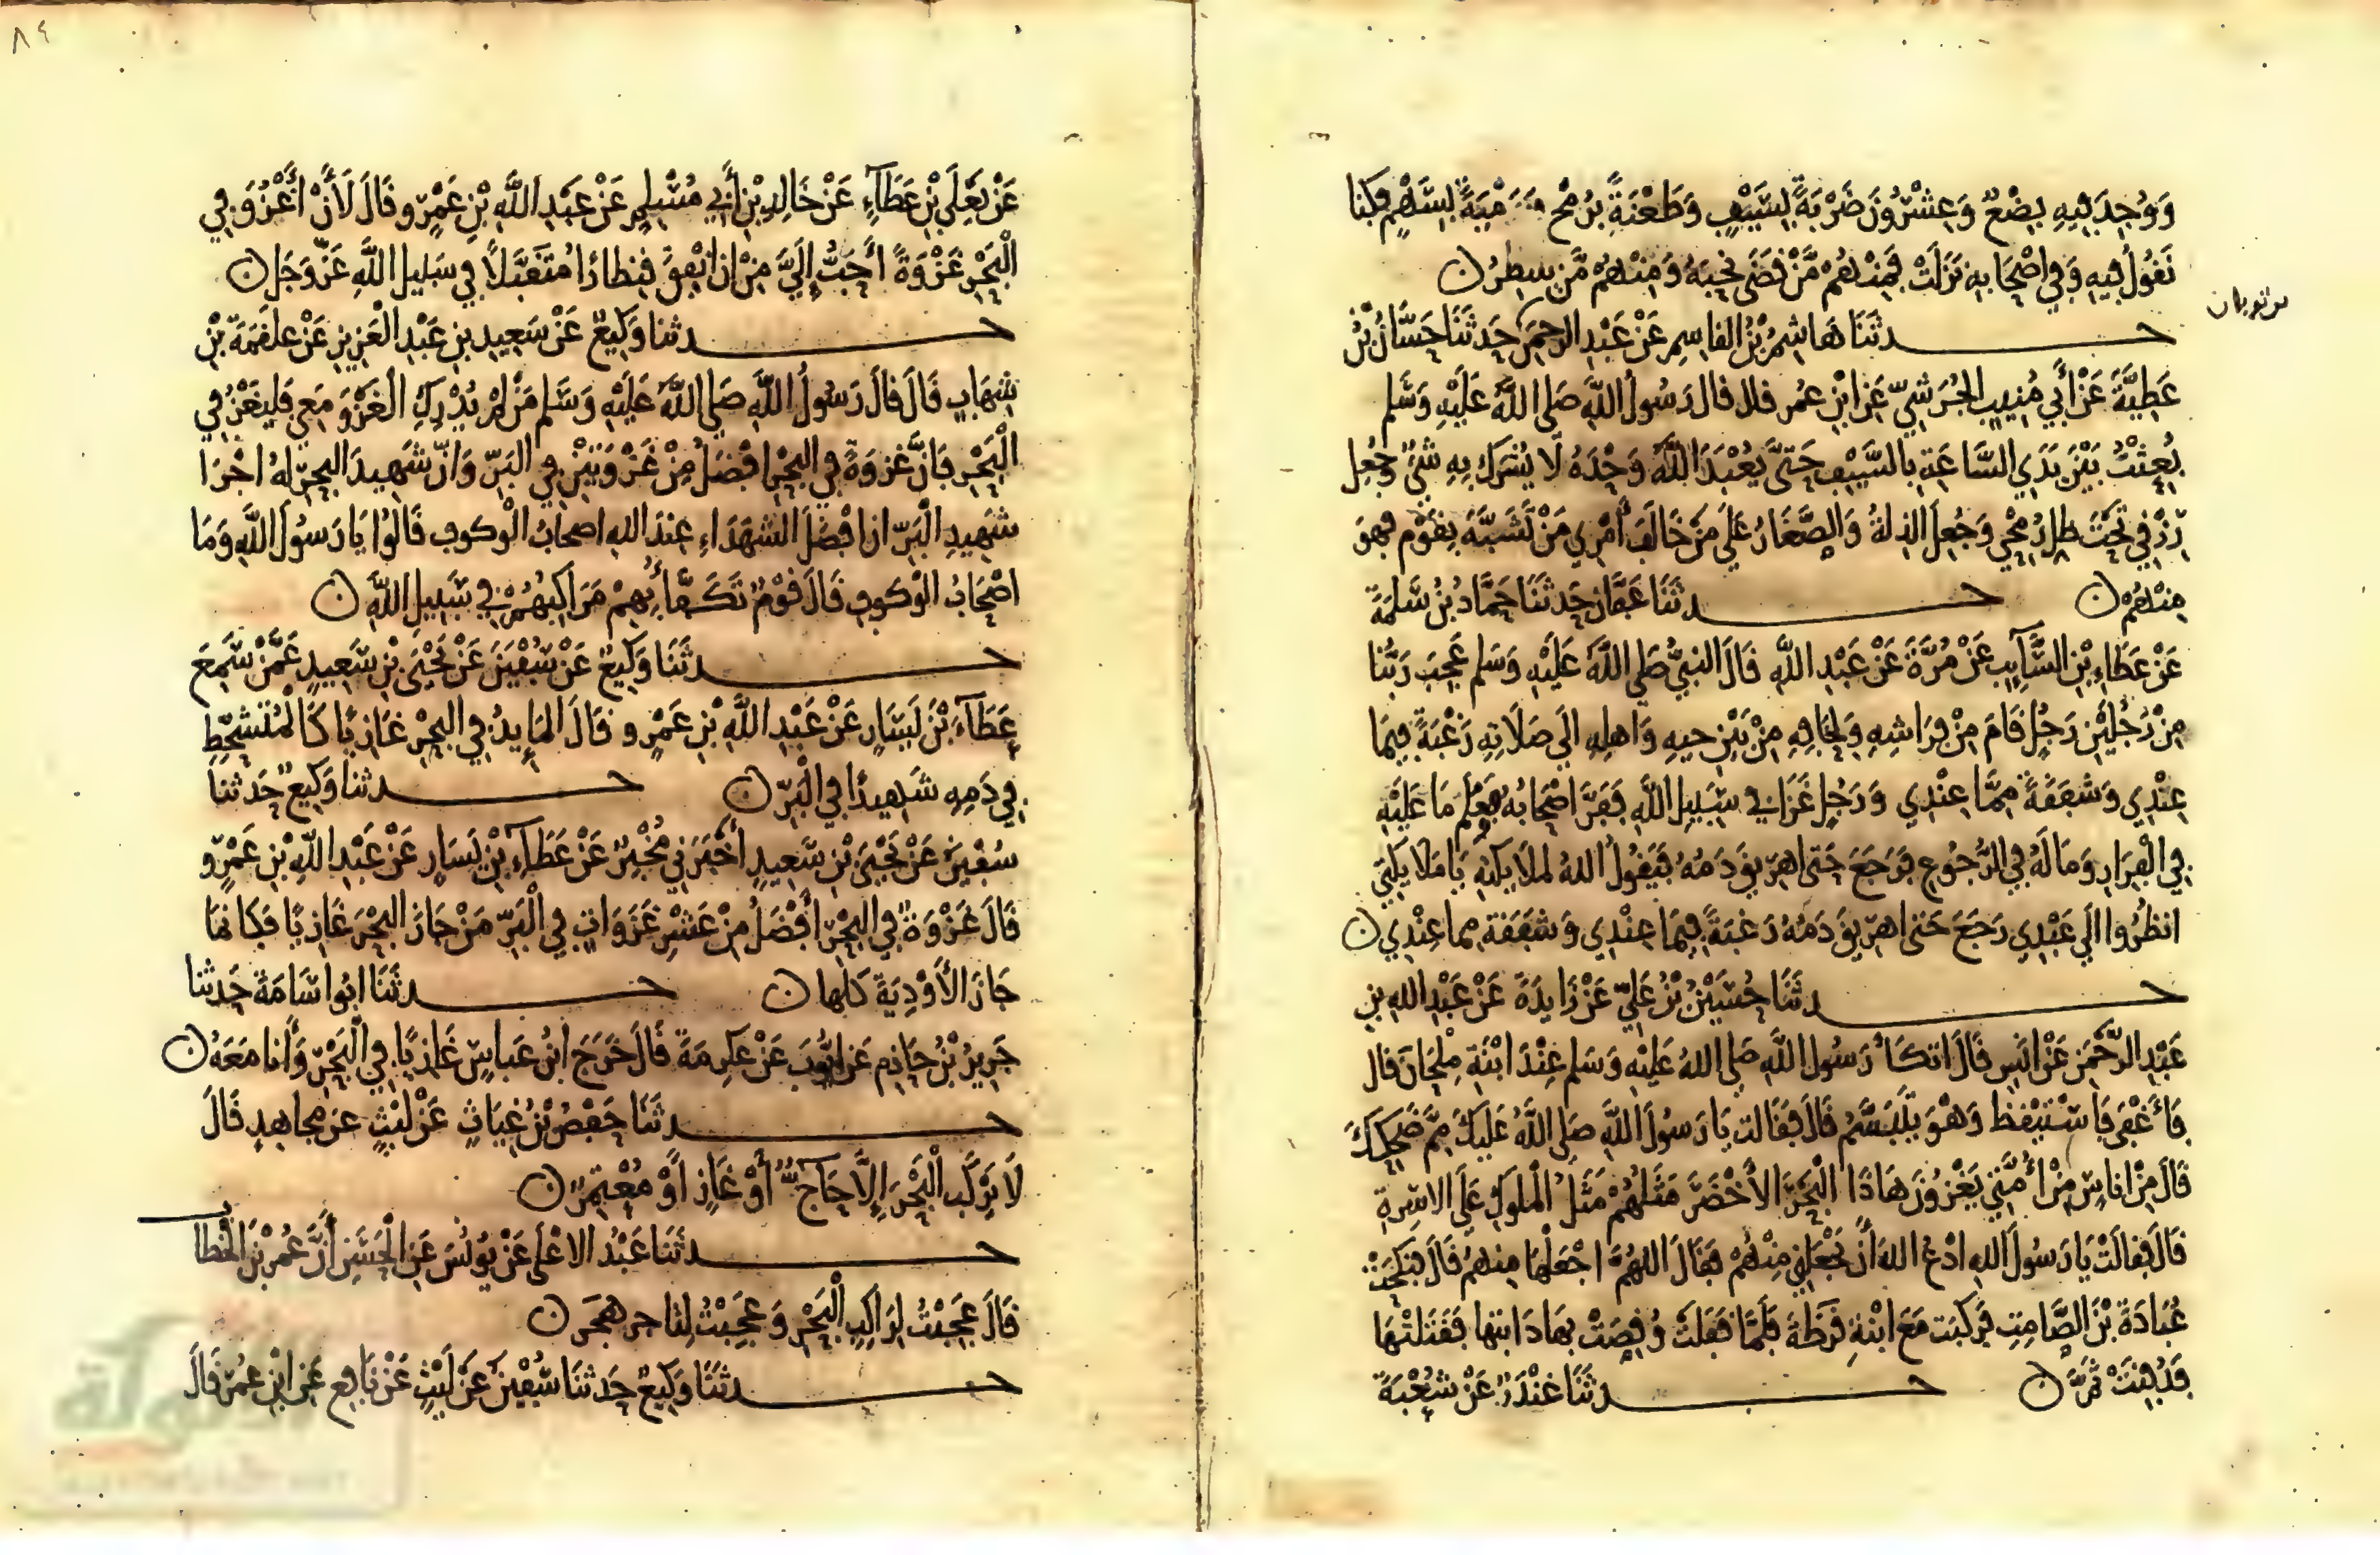 وَوُجِدَ فِيهِ بِضْعٌ وَعِشْرُونَ ضَرْبَةً بِسَيْفٍ وَطَعْنَةً بِرُمْحٍ وَرَمْيَةً بِسَهْمٍ فكنا
نَقُولُ فِيهِ وَفِي اصْحَابِهِ نَزَلَتْ فَمِنْهُمْ مَّنْ قَضَى نَحْبَهُ وَمِنْهُمْ مَّن ينتظرُ ن
حدثَنَا هَاشِمُ بْنُ القاسِمِ عَنْ عَبْدِ الرحمَنِ حَدثَنَا حَسَّانُ بْنُ
عَطِيَّةَ عَنْ أَبِي مُنِيبٍ الجُرَشِيِّ عَنِ ابْنِ عُمر قال قال رَسُولُ اللَّهِ صَلى اللَّهُ عَلَيْهِ وَسَلم
بُعِثْتُ بَيْنَ يَدَيِ السَّاعَةِ بِالسَّيْفِ حَتَّى يُعْبَدَ اللَّهُ وَحْدَهُ لَا يُشْرَكُ بِهِ شَىْءٌ وَجُعِل
رِزْقِي تَحْتَ ظِل رُمْحِي وَجُعِلَ الذِلةُ وَالصَّغَارُ عَلَى مَنْ خَالَفَ أَمْرِي مَنْ تَشَبَّهَ بِقَوْمٍ فهوَ
مِنْهُمْ ن حدثَنَا عَفَّان حَدثَنَا حَمَّادُ بْنُ سَلمَةَ
عَنْ عَطَاءِ بْنِ السَّآئِبِ عَنْ مُرَّةَ عَنْ عَبْدِ اللَّهِ قَالَ النبِيُّ صَلى اللَّهُ عَلَيْهِ وَسَلم عَجِبَ رَبُّنَا
مِنْ رَجُلَيْنِ رَجُلٍ قَامَ مِنْ فِرَاشِهِ وَلِحَافِهِ مِنْ بَيْنِ حِبهِ وَاهلِهِ الَى صَلَاتِهِ رَغْبَةً فِيمَا
عِنْدِي وَشفَقَةً مِمَّا عِنْدِي وَرَجُلٍ غَزَا فِي سَبِيلِ اللَّهِ فَفَرَّ اصْحَابُهُ فَعَلِمَ مَا عَلَيْهِ
فِي الْفِرَارِ وَمَا لَهُ فِي الرُّجُوعِ فَرَجَعَ حَتى اهرِيقَ دَمُهُ فَيَقُولُ اللهُ لملَائِكَتِهِ يَا مَلَائِكَتِي
انظُرُوا الَى عَبْدِي رَجَعَ حَتى اهرِيقَ دَمُهُ رَغبَةً فِيمَا عِنْدِي وَشَفَقَة مِما عِنْدِي ن
حدثَنَا حُسَيْنُ بْنُ عَلِيّ عَنْ زَايِدَةَ عَنْ عَبْدِ اللهِ بْنِ
عَبْدِ الرَّحْمَنِ عَنْ انَسٍ قَالَ اتكَأَ رَسُولُ اللَّهِ صَلى اللهُ عَلَيْهِ وَسَلم عِنْدَ ابْنَةِ مِلْحَانَ قال
فَأَغْفَى فَاسْتَيْقظ وَهْوَ يَتَبَسَّمُ قَالَ فقَالت يَا رَسُولَ اللَّهِ صَلى اللَّهُ عَليكَ مِمَّ ضَحِكُكَ
قَالَ مِنْ انَاسٍ مِنْ أُمَّتِي يَغْزُونَ هَاذَا الْبَحْرَ الأَخْضَرَ مَثَلُهُمْ مَثَلُ الْملُوكِ عَلَى الاسِرةِ
قَالَ فقالَتْ يَا رَسُولَ اللهِ ادْعُ اللهَ أَنْ يَجْعَلَنِي مِنْهُمْ فَقَالَ اللهُمَّ اجْعَلْهَا مِنهمْ قَالَ فنَكَحَتْ
عُبَادَةَ بْنَ الصَّامِتِ فَركبَت مَعَ ابْنَةِ قَرَظَةَ فَلَمَّا قفَلَتْ وُقِصَتْ بِهَا دَابتها فَقَتَلتْهَا
فَدُفِنَتْ ثَمَّ ن حدثَنَا غُنْدَرٌ عَنْ شُعْبَةَ
٨٤
عَنْ يَعْلَى بْنِ عَطَآءٍ عَنْ خَالِدِ بْنِ أَبِي مُسْلِمٍ عَنْ عَبْدِ اللَّهِ بْنِ عَمْرٍو قَالَ لَأَنْ أَغْزُوَ فِي
الْبَحْرِ غَزْوَةً أَحَبُّ إِلَيَّ مِنْ ان انْفِقَ قِنطارًا مُتَقَبَّلًا فِي سَبِيلِ اللَّهِ عَزَّ وَجَل ن
حدثنا وَكِيعٌ عَنْ سَعِيدِ بنِ عَبْدِ الْعَزِيزِ عَنْ عَلقَمَةَ بْنِ
شِهَابٍ قَالَ قالَ رَسُولُ اللَّهِ صَلى اللَّهُ عَلَيْهِ وَسَلم مَنْ لمْ يُدْرِكِ الغَزْوَ مَعِي فَليَغْزُ فِي
الْبَحْرِ فَإِنَّ غزوَةً فِي البَحْرِ افْضَلُ مِنْ غَزْوَتَيْنِ فِي البَرِّ وَانّ شَهِيدَ البحرِ لهُ اجْرَا
شَهِيدِ الْبَرِّ ان افْضَلَ الشهَدَاءِ عِندَ اللهِ اصحابُ الْوكوفِ قَالُوا يَا رَسُولَ اللَّهِ وَمَا
اصْحَابُ الْوكوفِ قَالَ قَوْمٌ تَكَفَّأُ بِهِمْ مَرَاكِبُهُمْ فِي سَبِيلِ اللَّهِ ن
حدثَنَا وَكِيعٌ عَنْ سُفْيَنَ عَنْ يَحْيَى بْنِ سَعِيدٍ عَمَّنْ سَمِعَ
عَطَآءَ بْنَ يَسَارٍ عَنْ عَبْدِ اللَّهِ بْنِ عَمْرٍو قَالَ المَايِدُ فِي البَحْرِ غَازِيًا كَالْمُتَشَحِّطِ
فِي دَمِهِ شَهِيدًا فِي الْبَرّ ن حدثنا وَكِيعٌ حَدثنا
سُفْيَنَ عَنْ يَحْيَىَ بْنِ سَعِيدٍ أَخْبَرَنِي مُخْبِرٌ عَنْ عَطَآءِ بْنِ يَسَارٍ عَنْ عَبْدِ اللَّهِ بْنِ عَمْرٍو
قَالَ غَزْوَةٌ فِي البَحْرِ أَفْضَلُ مِنْ عَشْرِ غَزَوَاتٍ فِي الْبَرّ مَنْ جَازَ البَحْرَ غَازِيًا فَكَانمَا
جَازَ الأَوْدِيَةَ كُلهَا ن حدثَنَا ابُو اسَامَةَ حَدثنا
جَرِيرُ بْنُ حَازِمٍ عَن ايُّوبَ عَنْ عِكرِمَةَ قَالَ خَرَجَ ابْنُ عَباسٍ غَازِيًا فِي الْبَحْرِ وَأَنا مَعَهُ ن
حدثَنَا حَفْصُ بْنُ غِيَاثٍ عَنْ لَيْثٍ عن مجاهدٍ قَالَ
لَا يَرْكَبِ الْبَحْرَ إِلَّا حَآجٌّ أَوْ غَازٍ أَوْ مُعْتَمِرٌ ن
حدثَنَا عَبْدُ الاعْلَى عَنْ يُونُسَ عَنِ الْحَسَنِ أَنَّ عُمرَ بْنَ الْخَطاب
قَالَ عَجِبْتُ لِرَاكِبِ الْبَحْرِ وَعَجِبْتُ لِتَاجر هَجَر ن
حدثَنَا وَكِيعٌ حَدثنَا سُفْيَنَ عَنْ لَيْثٍ عَنْ نَافِعٍ عَنِ ابْنِ عُمَرَ قَالَ